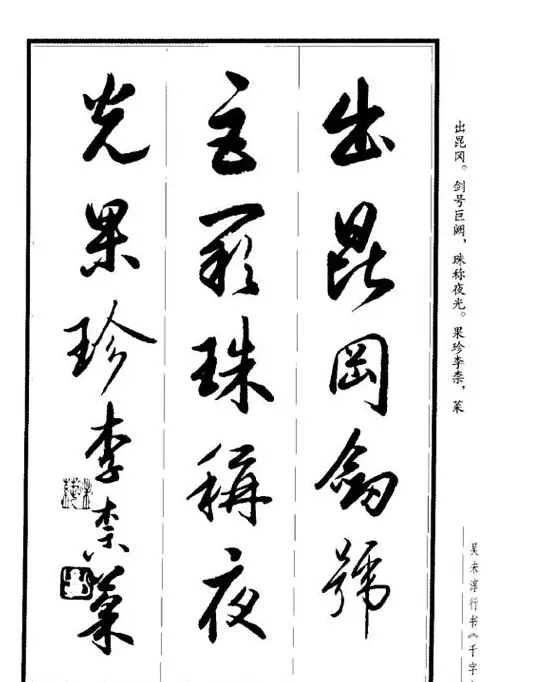 出崑岡劔號
巨闕珠稱夜
光果珍李柰菜
出昆冈。剑号巨阙，珠称夜光。果珍李柰，菜
吴未淳行书《千字